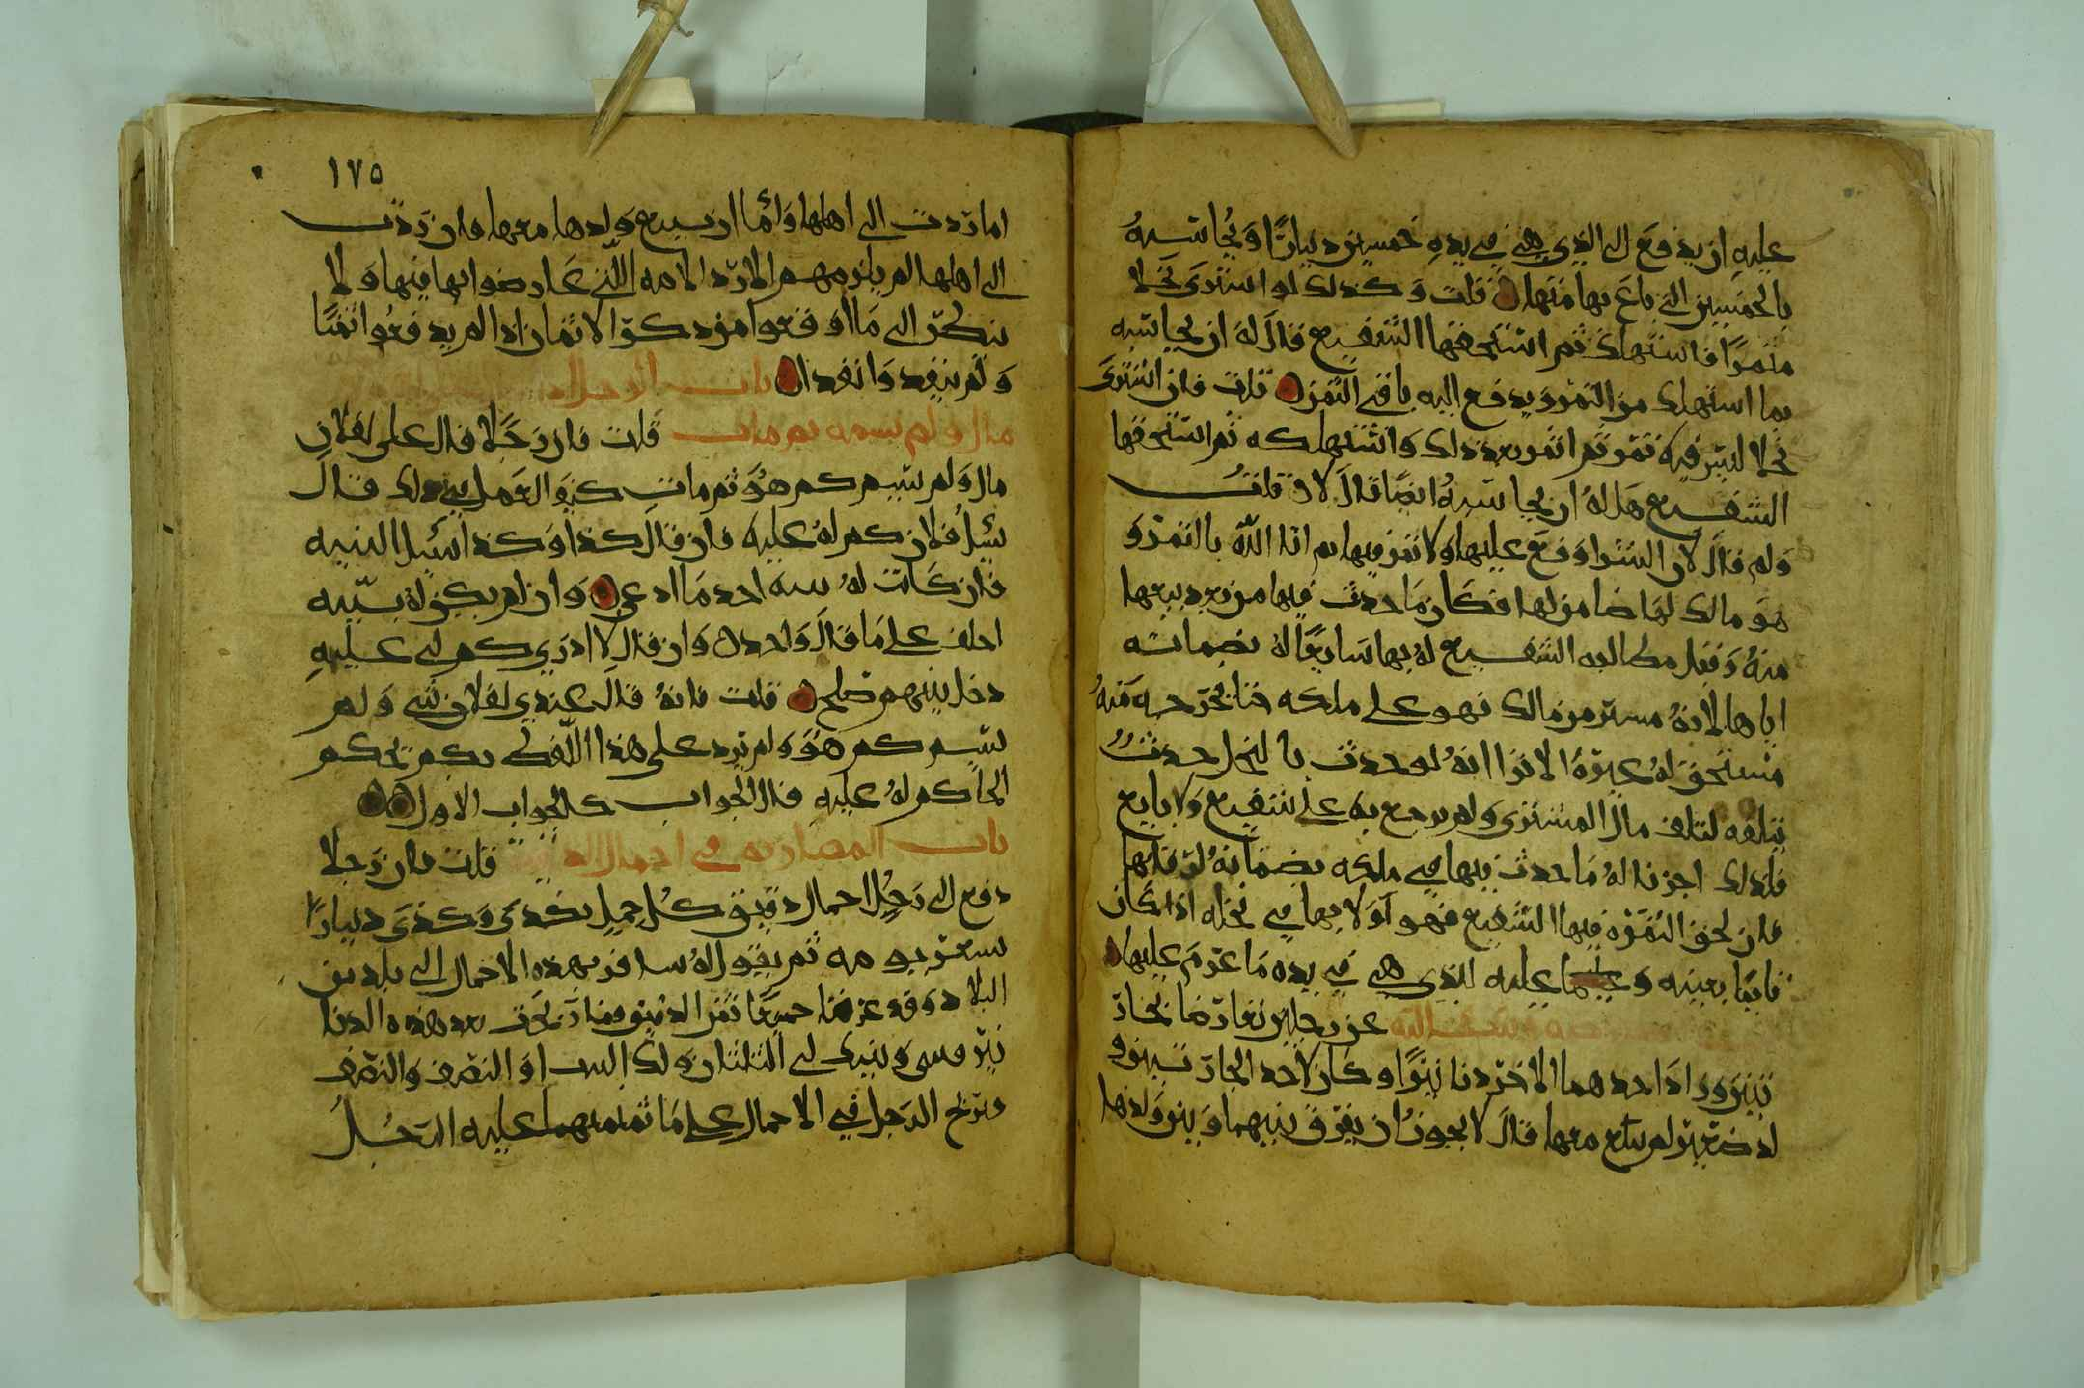 عليه ان يدفع الى الذي هي في يده خمسين دينارًا ويُحاسبهُ
بالخمسين التي باع بها منها قلت وكذلك لو اشترى نخلا
مثمرًا فاستهلك ثم استحقها الشفيع قال له ان يحاسبه
بما استهلك من الثمر ويدفع اليه باقي الثمن قلت فان اشترى
نخلا ليس فيه ثمر ثم اثمر بعد ذلك واستهلكه ثم استحقها
الشفيع هل لهُ ان يحاسبهُ ايضًا قال لا قلت
ولم قال لان الشرا وقع عليها ولا ثمر فيها ثم اتا الله بالثمر و
هو مالك لها ضامن لها فكان ما حدث فيها من بعد بيعها
منهُ وقبل مطالبه الشفيع لهُ بها سايغًا لهُ بضمانه
اياها لانهُ مشتر من مالك فهو على ملكه حتا يخرجه منهُ
مستحق لهُ غيرهُ الا ترا انهُ لو حدث بالنخل حدثُ
يتلفه لتلف مال المشتري ولم يرجع به على شفيع ولا بايع
فلذلك اجزنا لهُ ما حدث فيها في ملكه بضمانهُ لرقابها
فان لحق الثمره فيها الشفيع فهو اولا بها في نخله اذا كان
قايمًا بعينه و عليه للذي هي في يده ما غرم عليها
عن رجلين تعارضا بجار
يتين وزاد احدهما الاخر دنانيرًا وكان لاحد الجاريتين و
لد ضغير لم يباع معها قال لا يجوز ان يفرق بينهما وبين ولدها
١٧٥
اما ردت الى اهلها وامّا ان يبيع ولدها معها فان ردت
الى اهلها لم يلزمهم الا رد الامه اللتي عارضوا بها فيها ولا
ينظر الى ما اوقعوا من ذكر الاثمان اذا لم يدفعُوا ثمنًا
ولم ينقد وانقدا باب الرجل
مال ولم يسمه ثم مات قلت فان رجلا قال على لفلان
مال ولم يسم كم هُو ثم مات كيف العمل في ذلك قال
يسُلُ فلان كم لهُ عليه فان قال كذا وكذا اسُيل البينه
فان كانت لهُ بينه اخذ ما ادعى وان لم يكن له بينه
احلف على ما قال واخذ وان قال لا ادري كم لي عليه
دخل بينهم صلح قلت فانهُ قال عندي لفلان شي ولم
يسم كم هُو ولم يزد على هذا اللفظ بكم يحكم
الحاكم لهُ عليه قال الجواب كالجواب الاول
باب المضاربه في احمال الدقيق قلت فان رجلا
دفع الى رجُل احمال دقيق كل حمل بكذى وكذى دينارًا
بسعر يومه ثم يقول لهُ سافر بهذه الاحمال الى بلد من
البلاد وقد عرفنا جميعًا ثمن الدقيق فما ربحت بعد هذه الدنا
نير بيني وبينك لي الثلثان ولك الثلث او النصف والنصف
فيربح الرجل في الاحمال على ما عليه الرجُلُ